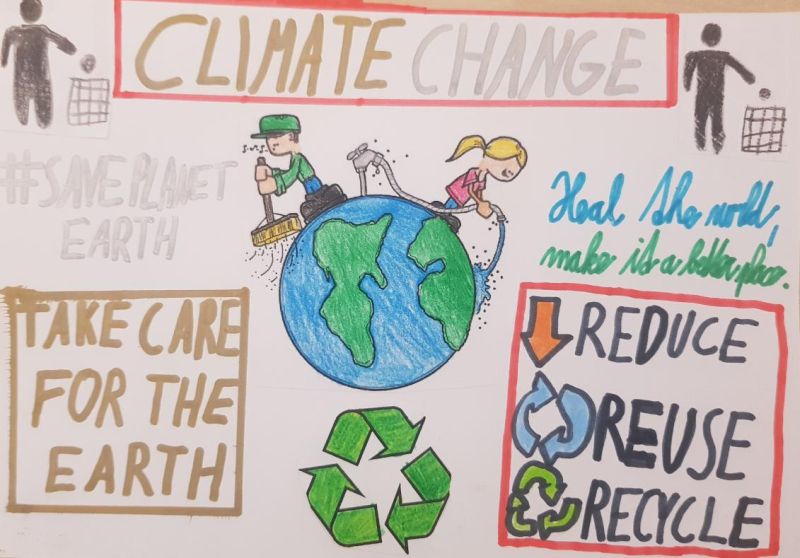 CLIMATE CHANGE
#SAVE PLANET
EARTH
Heal the world,
make it a better place.
TAKE CARE
FOR THE
EARTH
REDUCE
REUSE
RECYCLE